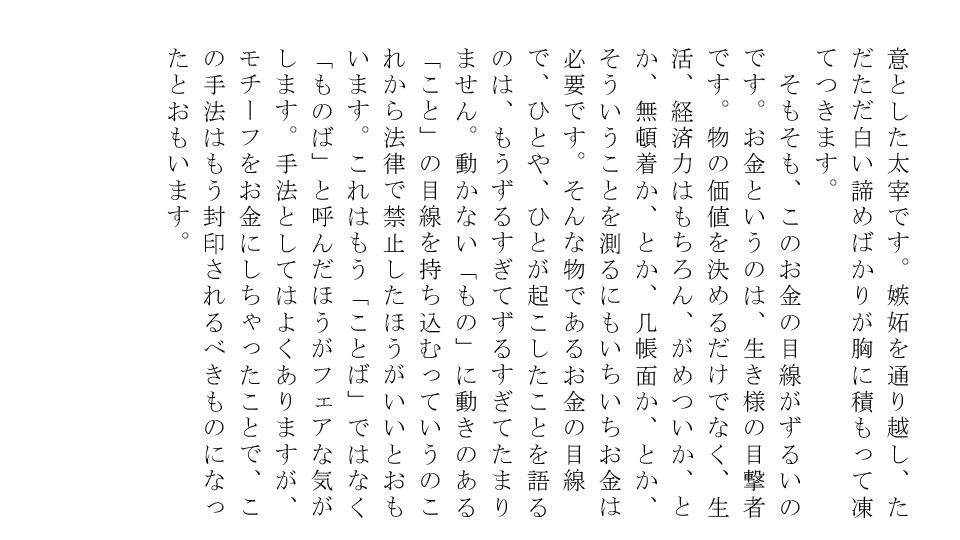 意とした太宰です。嫉妬を通り越し、た
だただ白い諦めばかりが胸に積もって凍
てつきます。
　そもそも、このお金の目線がずるいの
です。お金というのは、生き様の目撃者
です。物の価値を決めるだけでなく、生
活、経済力はもちろん、がめついか、と
か、無頓着か、とか、几帳面か、とか、
そういうことを測るにもいちいちお金は
必要です。そんな物であるお金の目線
で、ひとや、ひとが起こしたことを語る
のは、もうずるすぎてずるすぎてたまり
ません。動かない「もの」に動きのある
「こと」の目線を持ち込むっていうのこ
れから法律で禁止したほうがいいとおも
います。これはもう「ことば」ではなく
「ものば」と呼んだほうがフェアな気が
します。手法としてはよくありますが、
モチーフをお金にしちゃったことで、こ
の手法はもう封印されるべきものになっ
たとおもいます。